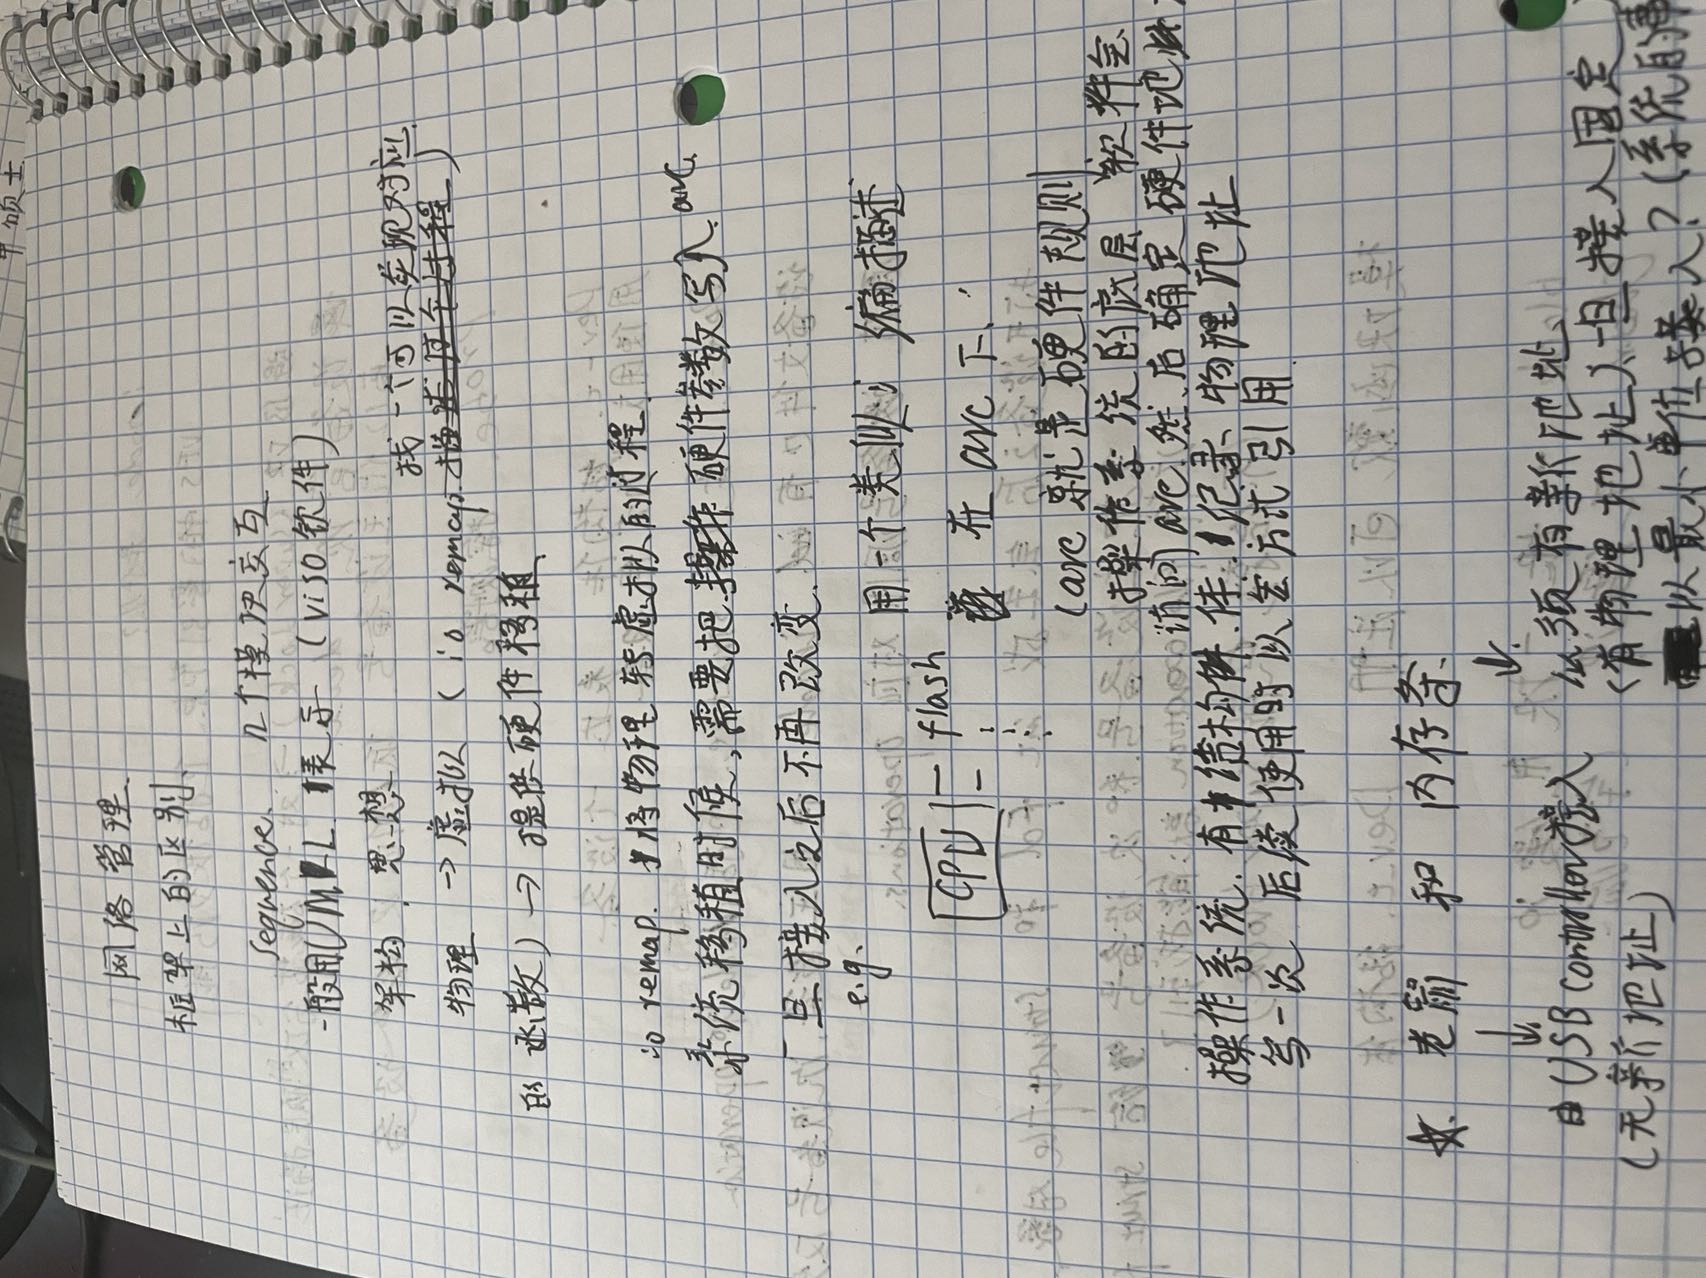 中硕士
网络管理.
框架上的区别.
sequence. 几个模块交互
一般用UML 表示 (viso软件)
架构. 思想
找一个可以实现对应
物理 → 虚拟 (io remap. 描述这个过程)
的函数) → 提供硬件移植.
io remap. 将物理转虚拟的过程.
系统移植时候,需要把操作硬件参数写入arc.
一旦接入之后不再改变.
e.g.
用一个类似 编描述
CPU flash
在 arc 下.
(arc 就是硬件规则
操作系统的底层 软件会
访问 arc. 然后确定硬件地址
操作系统. 有结构体. 记录物理地址
写一次 后续使用时以 方式引用.
☆. 老鼠 和 内存条.
↓ ↓
由USB controller接入 必须有新地址
(无新地址) (有物理地址) 一旦接入固定
以最小单位接入? (系统的